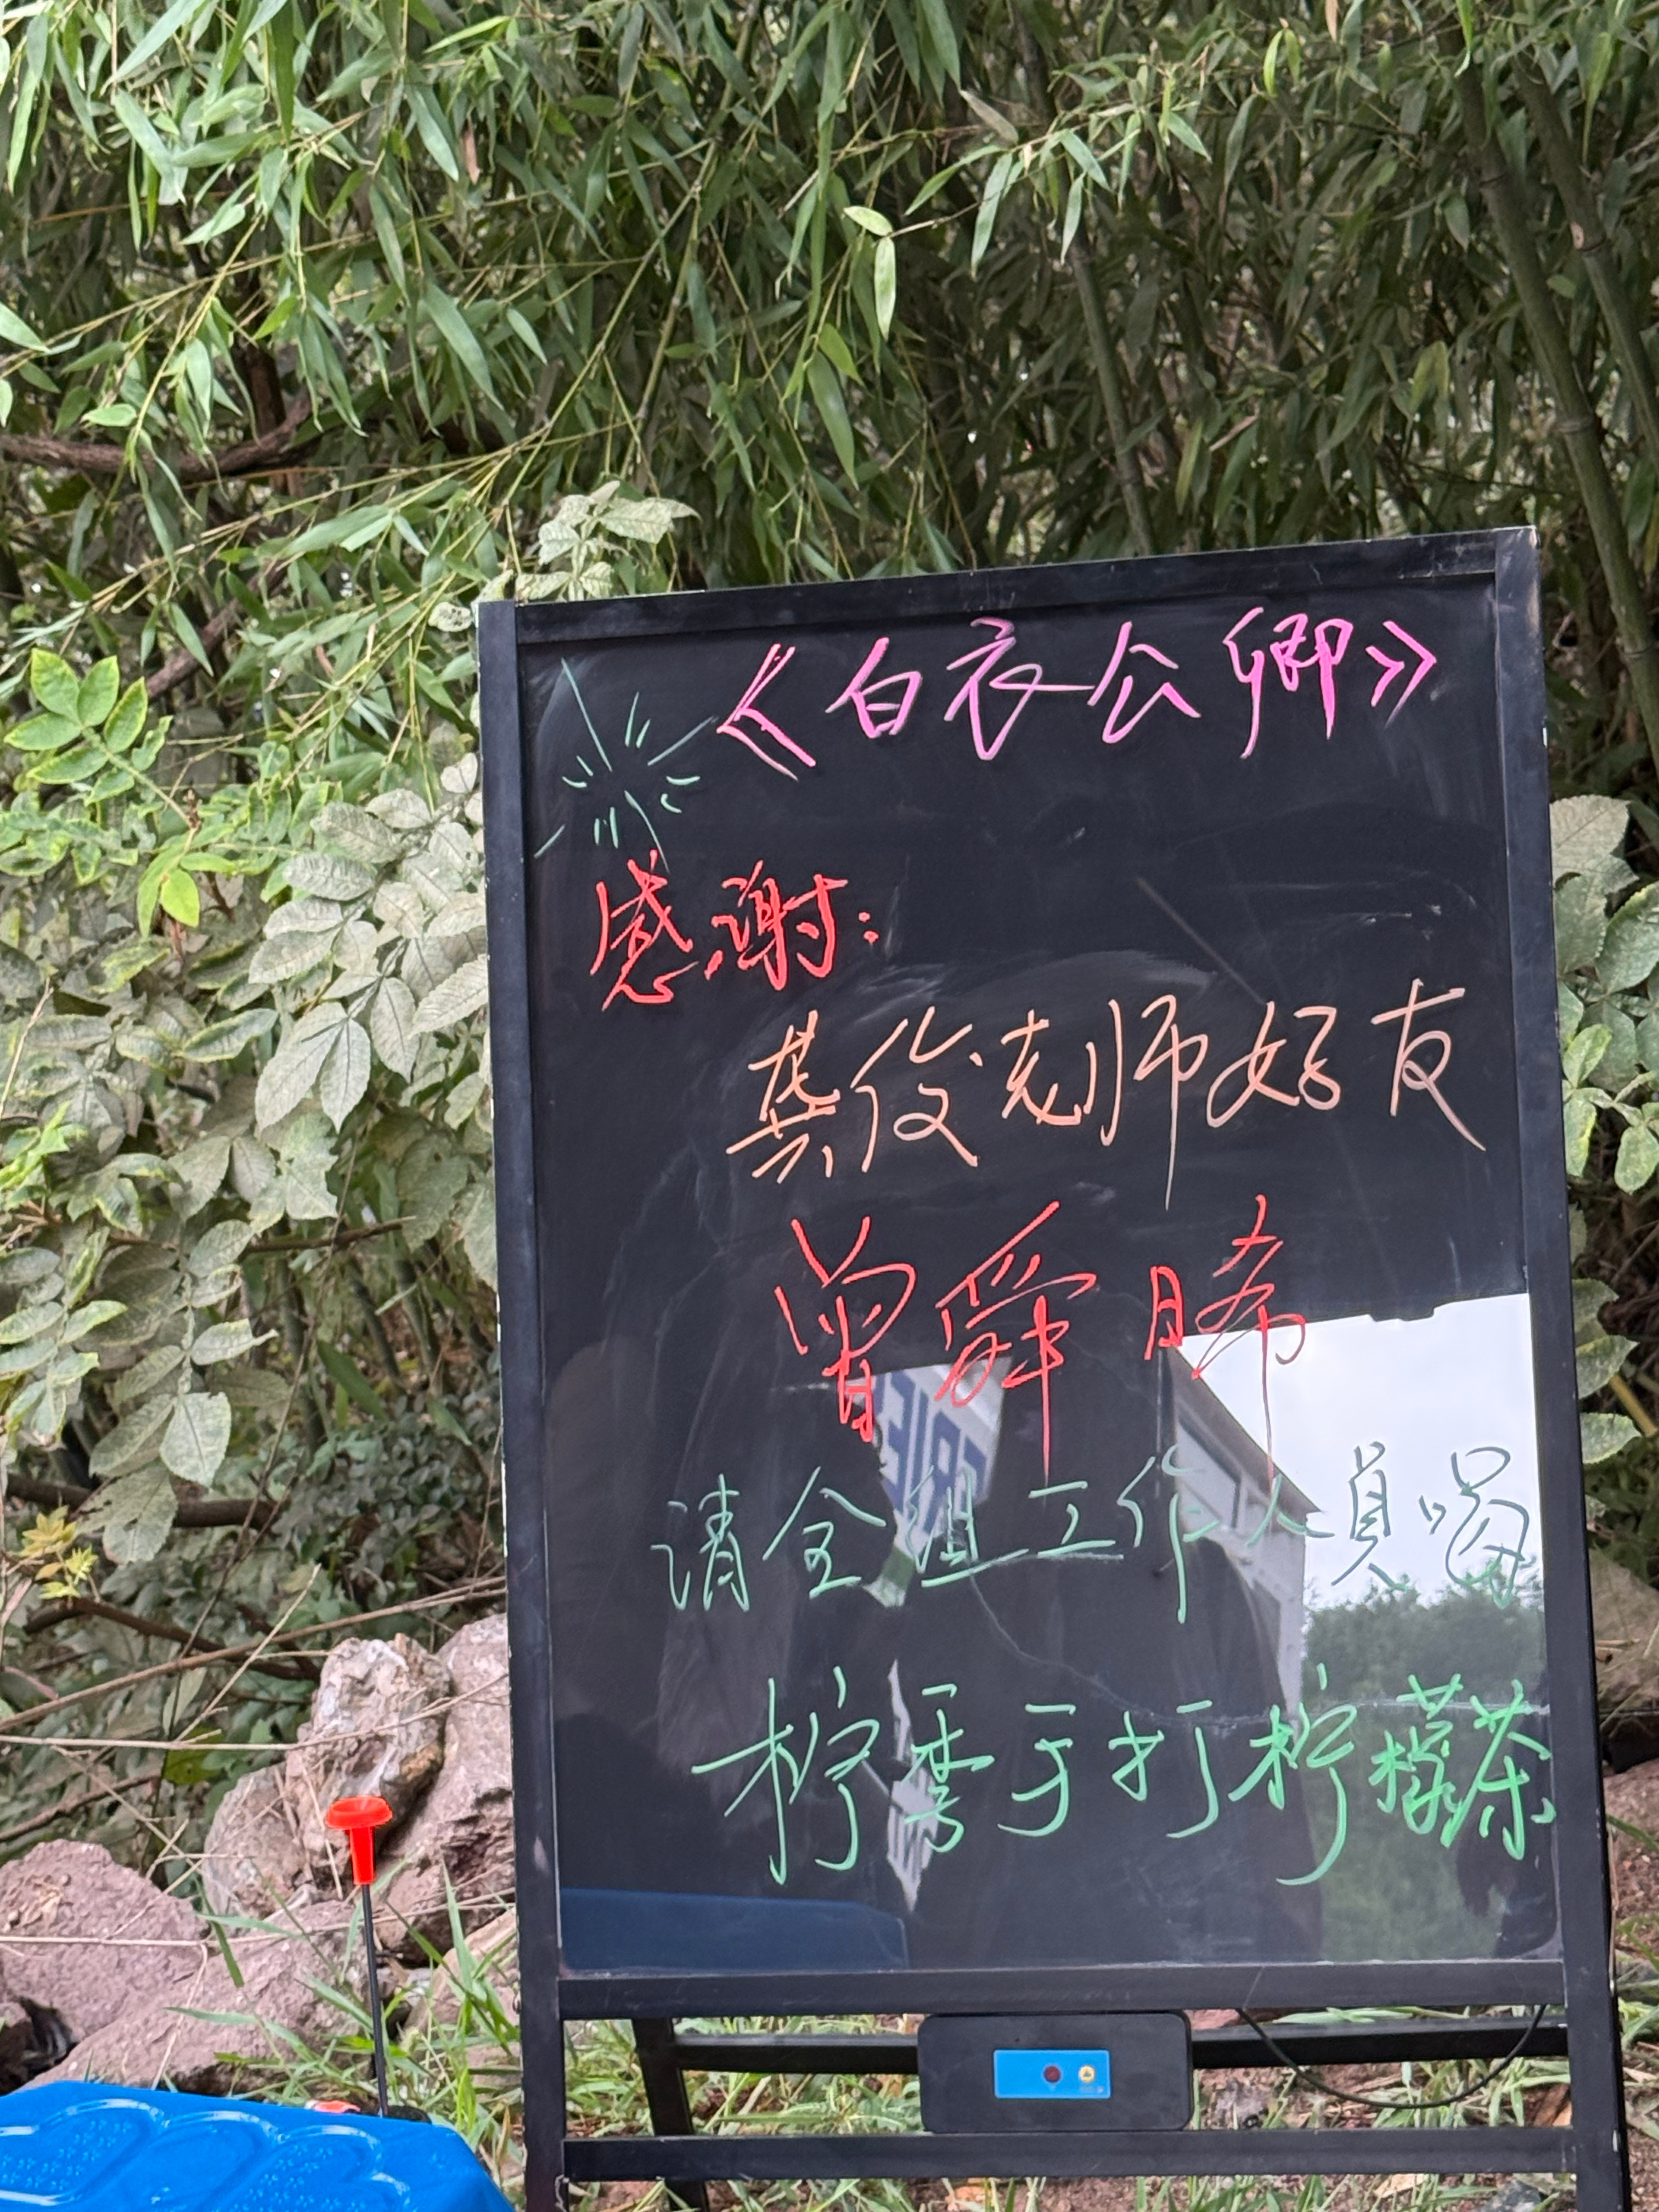 《白衣公卿》
感谢:
龚俊老师好友
曾舜晞
请全组工作人員喝
柠季手打柠檬茶